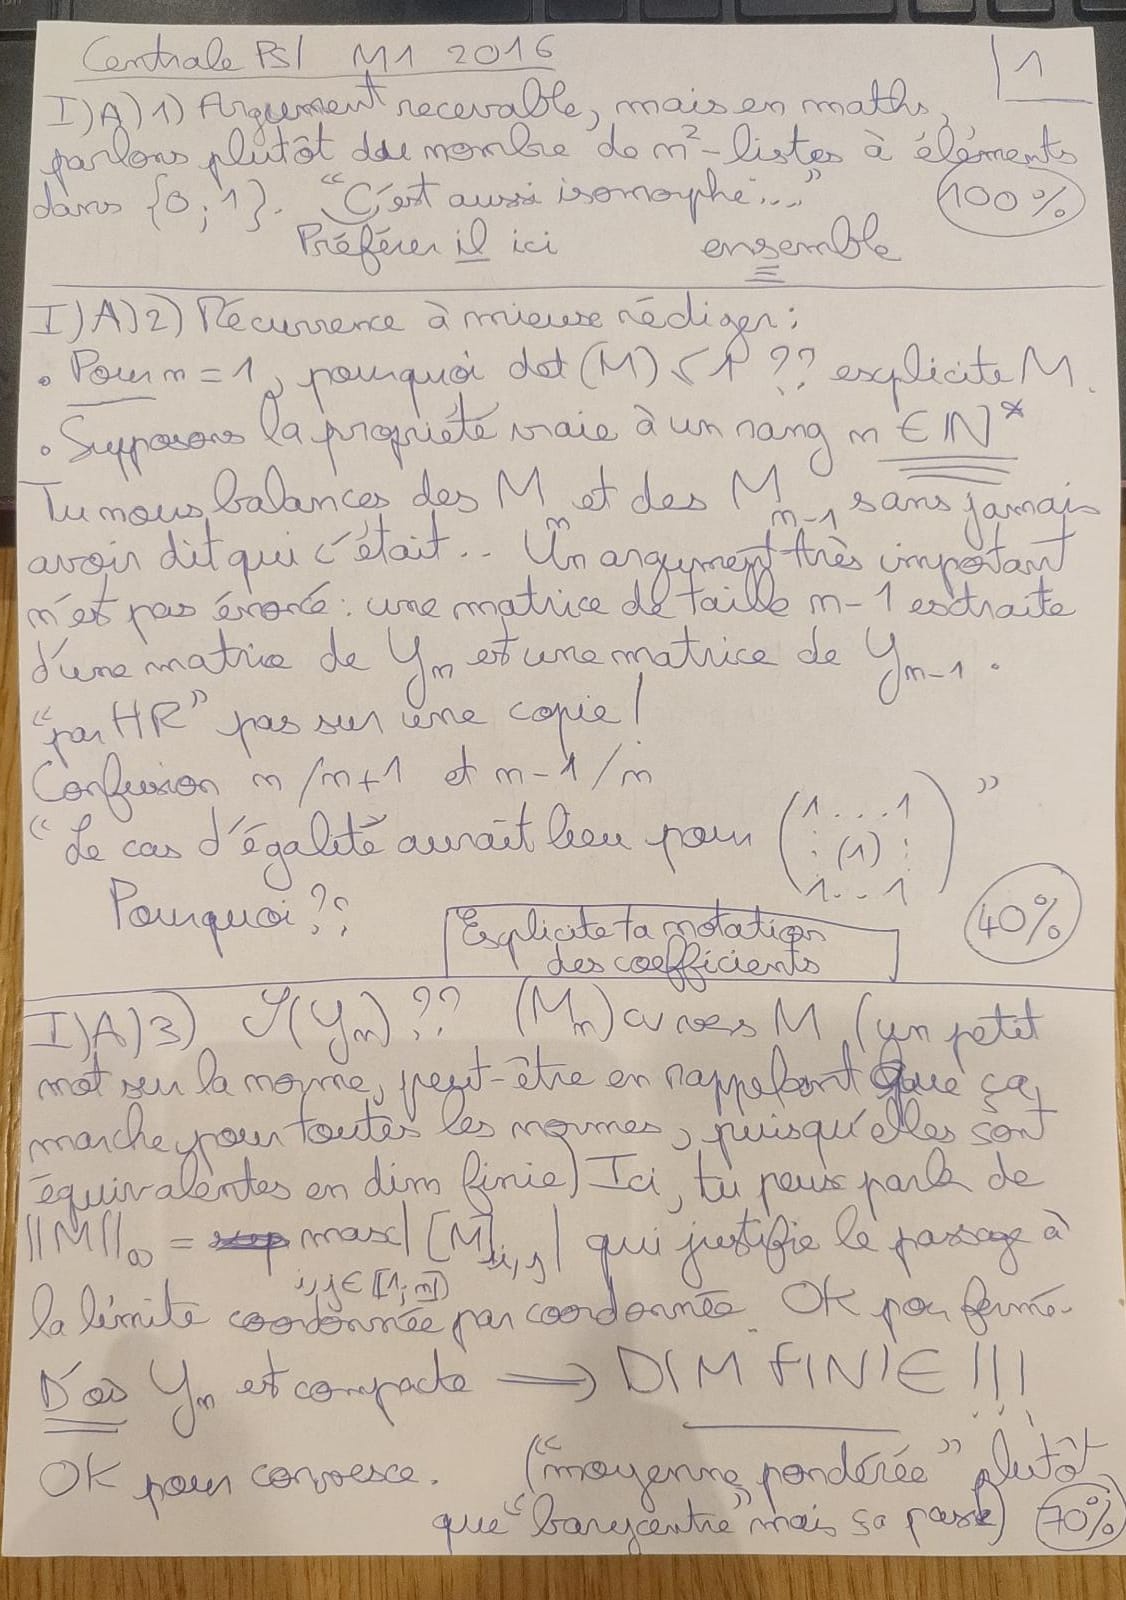 Centrale PSI M1 2016
1
I)A)1) Argument recevable, mais en maths,
parlons plutôt du nombre de n²-listes à éléments
dans {0;1}. "C'est aussi isomorphe..."
100%
Préférer il ici ensemble
I)A)2) Récurrence à mieux rédiger :
• Pour n=1, pourquoi det(M) ≤ 1 ?? explicite M.
• Supposons la propriété vraie à un rang n ∈ ℕ*
Tu nous balances des M_n et des M_{n-1} sans jamais
avoir dit qui c'était.. Un argument très important
n'est pas énoncé : une matrice de taille n-1 extraite
d'une matrice de Y_n est une matrice de Y_{n-1}.
"par HR" pas sur une copie !
Confusion n/n+1 et n-1/n
"Le cas d'égalité aurait lieu pour (1...1 : (1) : 1...1)"
Pourquoi ??
Explicite ta notation
des coefficients
40%
I)A)3) (Y_n) ?? (M_n) cv vers M (un petit
mot sur la norme, peut-être en rappelant que ça
marche pour toutes les normes, puisqu'elles sont
équivalentes en dim finie) Ici, tu peux parle de
||M||∞ = max |[M]_{i,j}| qui justifie le passage à
i,j∈⟦1;n⟧
la limite coordonnée par coordonnée. OK pour fermé.
D'où Y_n est compacte ⟹ DIM FINIE !!!
OK pour convexe. ("moyenne pondérée" plutôt
que "barycentre" mais sa passe)
70%